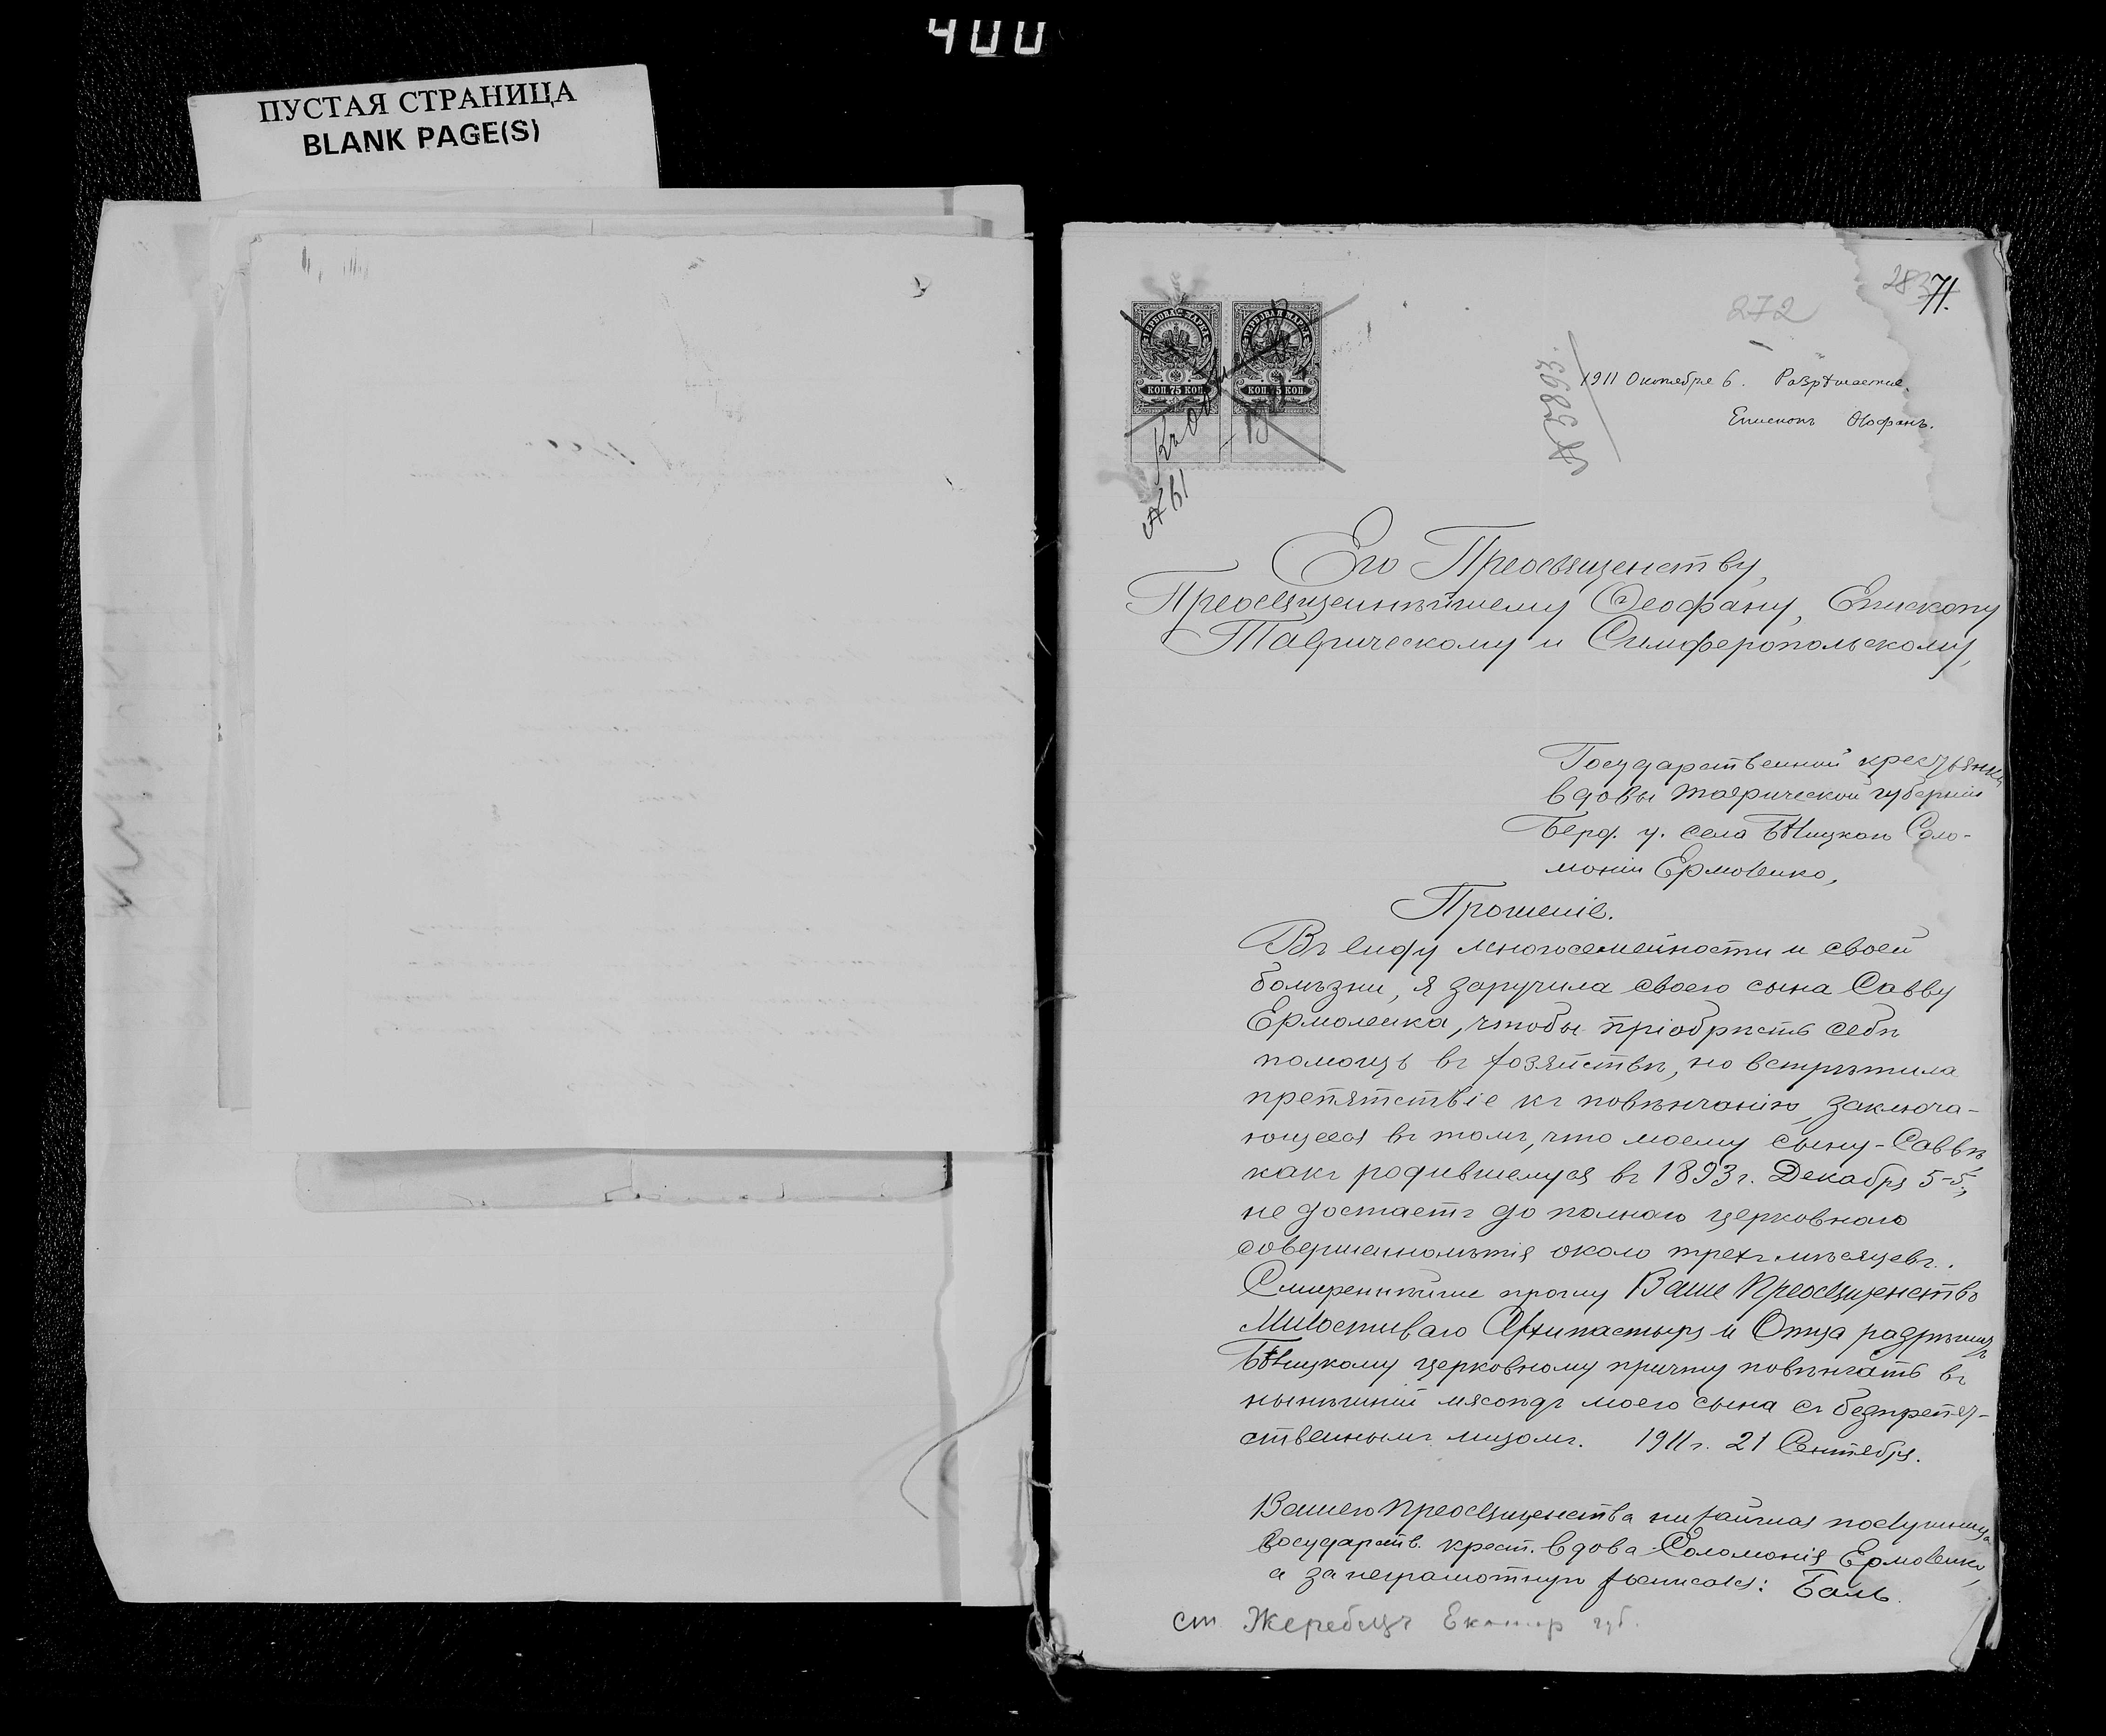 400
ПУСТАЯ СТРАНИЦА
BLANK PAGE(S)
71.
272
ГЕРБОВАЯ МАРКА
КОП 75 КОП
ГЕРБОВАЯ МАРКА
КОП 75 КОП
1911 Октября 6. Разрѣшается.
Епископъ Ѳеофанъ.
Его Преосвященству,
Преосвященнѣйшему Ѳеофану, Епископу
Таврическому и Симферопольскому,
Государственной крестьянки
вдовы Таврической губерніи
Берд. у. села Бѣлицкаго Соло-
моніи Ермоленко,
Прошеніе.
Въ виду многосемейности и своей
болѣзни, я заручила своего сына Савву
Ермоленка, чтобы пріобрѣсть себѣ
помощь въ хозяйствѣ, но встрѣтила
препятствіе къ повѣнчанію, заключа-
ющееся въ томъ, что моему сыну-Саввѣ
какъ родившемуся въ 1893 г. Декабря 5-го,
не достаетъ до полнаго церковнаго
совершеннолѣтія около трехъ мѣсяцевъ.
Смиреннѣйше прошу Ваше Преосвященство
Милостиваго Архипастыря и Отца разрѣшить
Бѣлицкому церковному причту повѣнчать въ
нынѣшній мясоѣдъ моего сына съ безпрепят-
ственнымъ лицомъ. 1911 г. 21 Сентября.
Вашего Преосвященства нижайшая послушница
Государств. крест. вдова Соломонія Ермоленко,
а за неграмотную росписался: Баль
ст Жеребецъ Екатер губ.